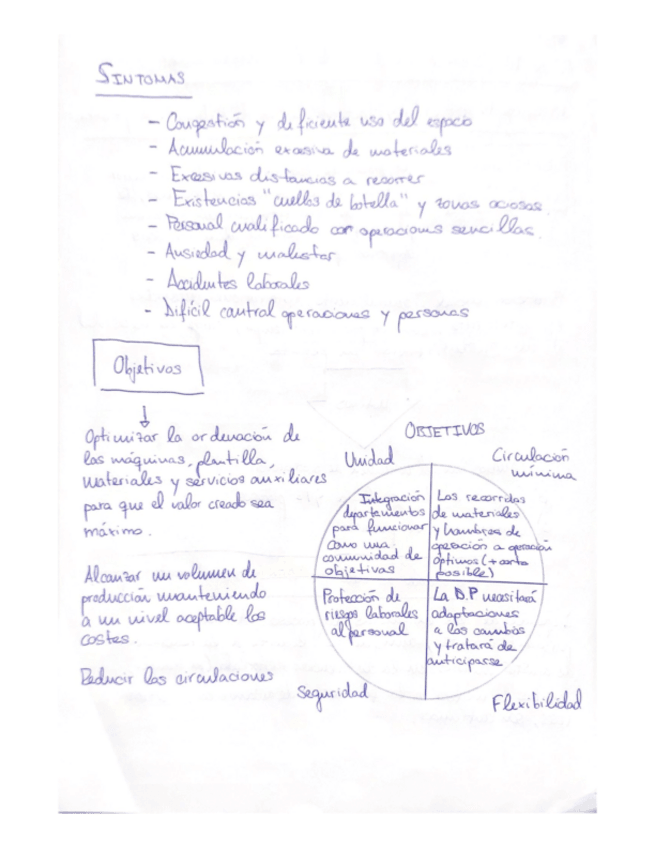 SINTOMAS
- Congestión y deficiente uso del espacio
- Acumulación excesiva de materiales
- Excesivas distancias a recorrer
- Existencias "cuellos de botella" y zonas ociosas.
- Personal cualificado con operaciones sencillas.
- Ansiedad y malestar
- Accidentes laborales
- Difícil control operaciones y personas
Objetivos
↓
Optimizar la ordenación de
las máquinas, plantilla,
materiales y servicios auxiliares
para que el valor creado sea
máximo.
Alcanzar un volumen de
producción manteniendo
a un nivel aceptable los
costes.
Reducir las circulaciones
OBJETIVOS
Unidad
Integración
departamentos
para funcionar
como una
comunidad de
objetivos
Circulación
mínima
Los recorridos
de materiales
y hombres de
operación a operación
óptimos (+ corto
posible)
Protección de
riesgos laborales
al personal
Seguridad
La D.P necesitará
adaptaciones
a los cambios
y tratará de
anticiparse
Flexibilidad